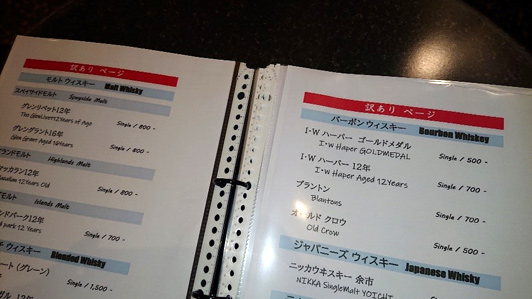 訳あり ページ
モルト ウィスキー Malt Whisky
スペイサイドモルト Speyside Malt
グレンリベット12年
The Glenlivet12Years of Age Single / 800 -
グレングラント16年
Glen Grant Aged 16Years Single / 800 -
ランドモルト Highlands Malt
マッカラン12年
12 Years Old Single / 800 -
ドモルト Islands Malt
ンドパーク12年
park 12 Years Single / 700 -
ド ウィスキー Blended Whisky
ート (グレーン)
Single / 1,500 -
訳あり ページ
バーボン ウィスキー Bourbon Whiskey
I・W ハーパー ゴールドメダル
I・W Haper GOLDMEDAL Single / 500 -
I・W ハーパー 12年
I・W Haper Aged 12Years Single / 700 -
ブラントン
Blantons Single / 700 -
オールド クロウ
Old Crow Single / 500 -
ジャパニーズ ウィスキー Japanese Whisky
ニッカウヰスキー 余市
NIKKA SingleMalt YOICHI